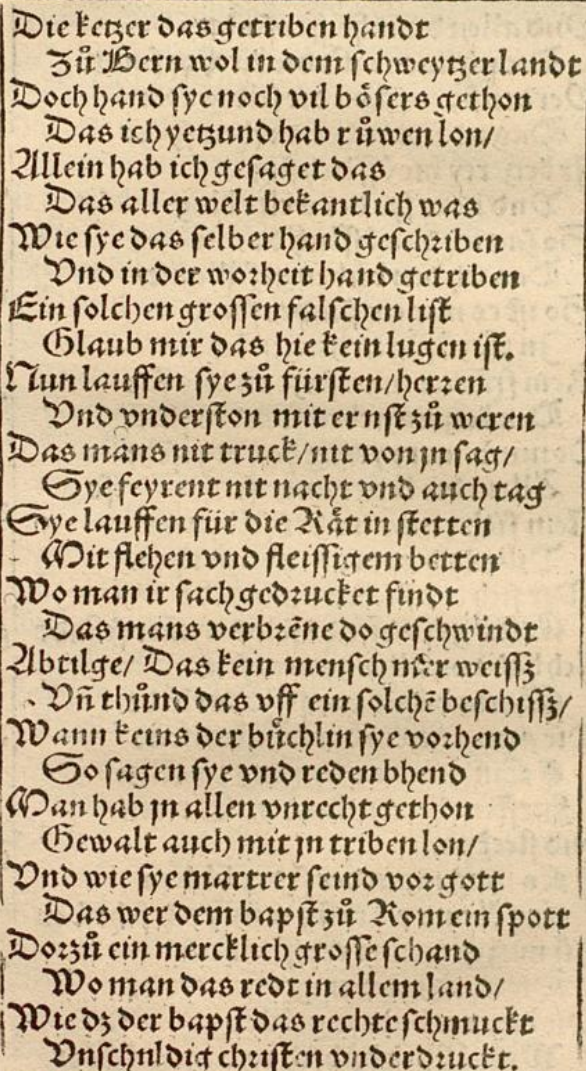 Die ketzer das getriben handt
Zů Bern wol in dem schweytzer landt
Doch hand sye noch vil bösers gethon
Das ich yetzund hab růwen lon/
Allein hab ich gesaget das
Das aller welt bekantlich was
Wie sye das selber hand geschriben
Vnd in der worheit hand getriben
Ein solchen grossen falschen list
Glaub mir das hie kein lugen ist.
Nun lauffen sye zů fürsten/herren
Vnd vnderston mit ernst zů weren
Das mans nit truck/nit von jn sag/
Sye feyrent nit nacht vnd auch tag
Sye lauffen für die Rät in stetten
Mit flehen vnd fleissigem betten
Wo man ir sach gedrucket findt
Das mans verbrēne do geschwindt
Abtilge/ Das kein mensch mer weissz
Vñ thůnd das vff ein solchē beschissz/
Wann keins der bůchlin sye vorhend
So sagen sye vnd reden bhend
Man hab jn allen vnrecht gethon
Gewalt auch mit jn triben lon/
Vnd wie sye martrer seind vor gott
Das wer dem bapst zů Rom ein spott
Dorzů ein mercklich grosse schand
Wo man das redt in allem land/
Wie dz der bapst das rechte schmuckt
Vnschuldig christen vnderdruckt.